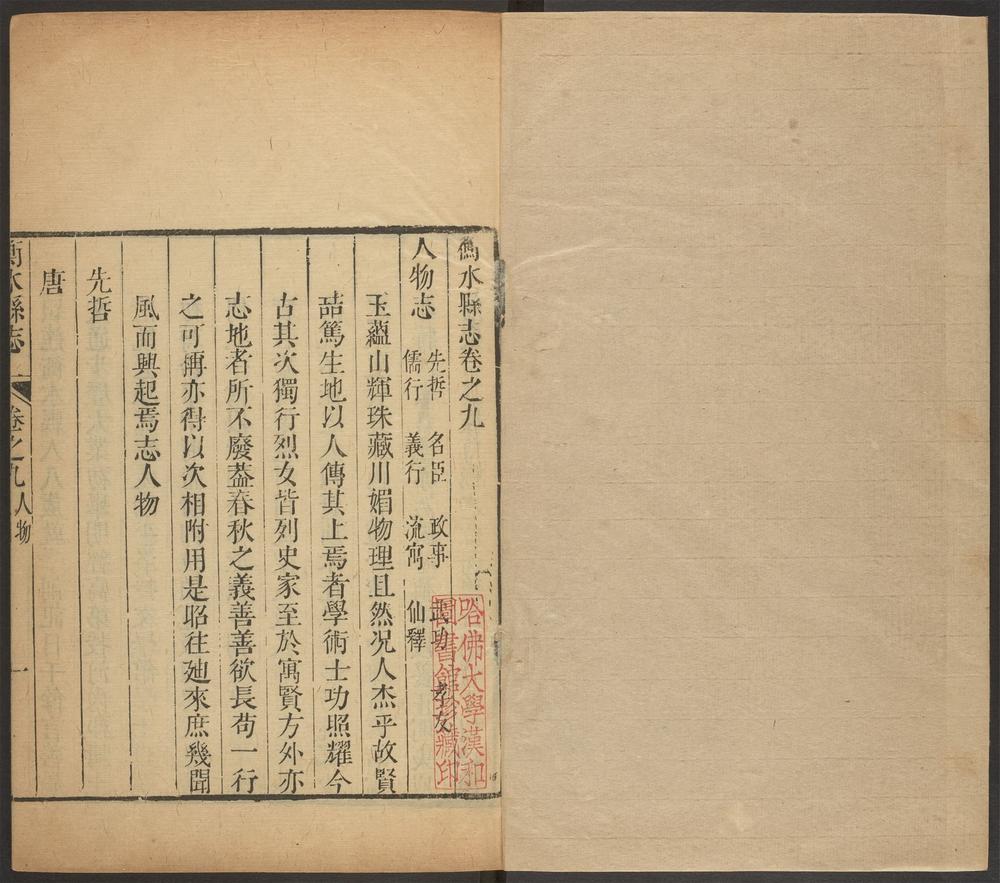 衡水縣志卷之九
人物志
先哲　名臣　政事　武功　孝友
儒行　義行　流寓　仙釋
玉蘊山輝珠藏川媚物理且然况人杰乎故賢
喆篤生地以人傳其上焉者學術士功照耀今
古其次獨行烈女皆列史家至於寓賢方外亦
志地者所不廢葢春秋之義善善欲長苟一行
之可稱亦得以次相附用是昭往廸來庶幾聞
風而興起焉志人物
先哲
唐
衡水縣志　卷之九　人物　一
哈佛大學漢和
圖書館珍藏印